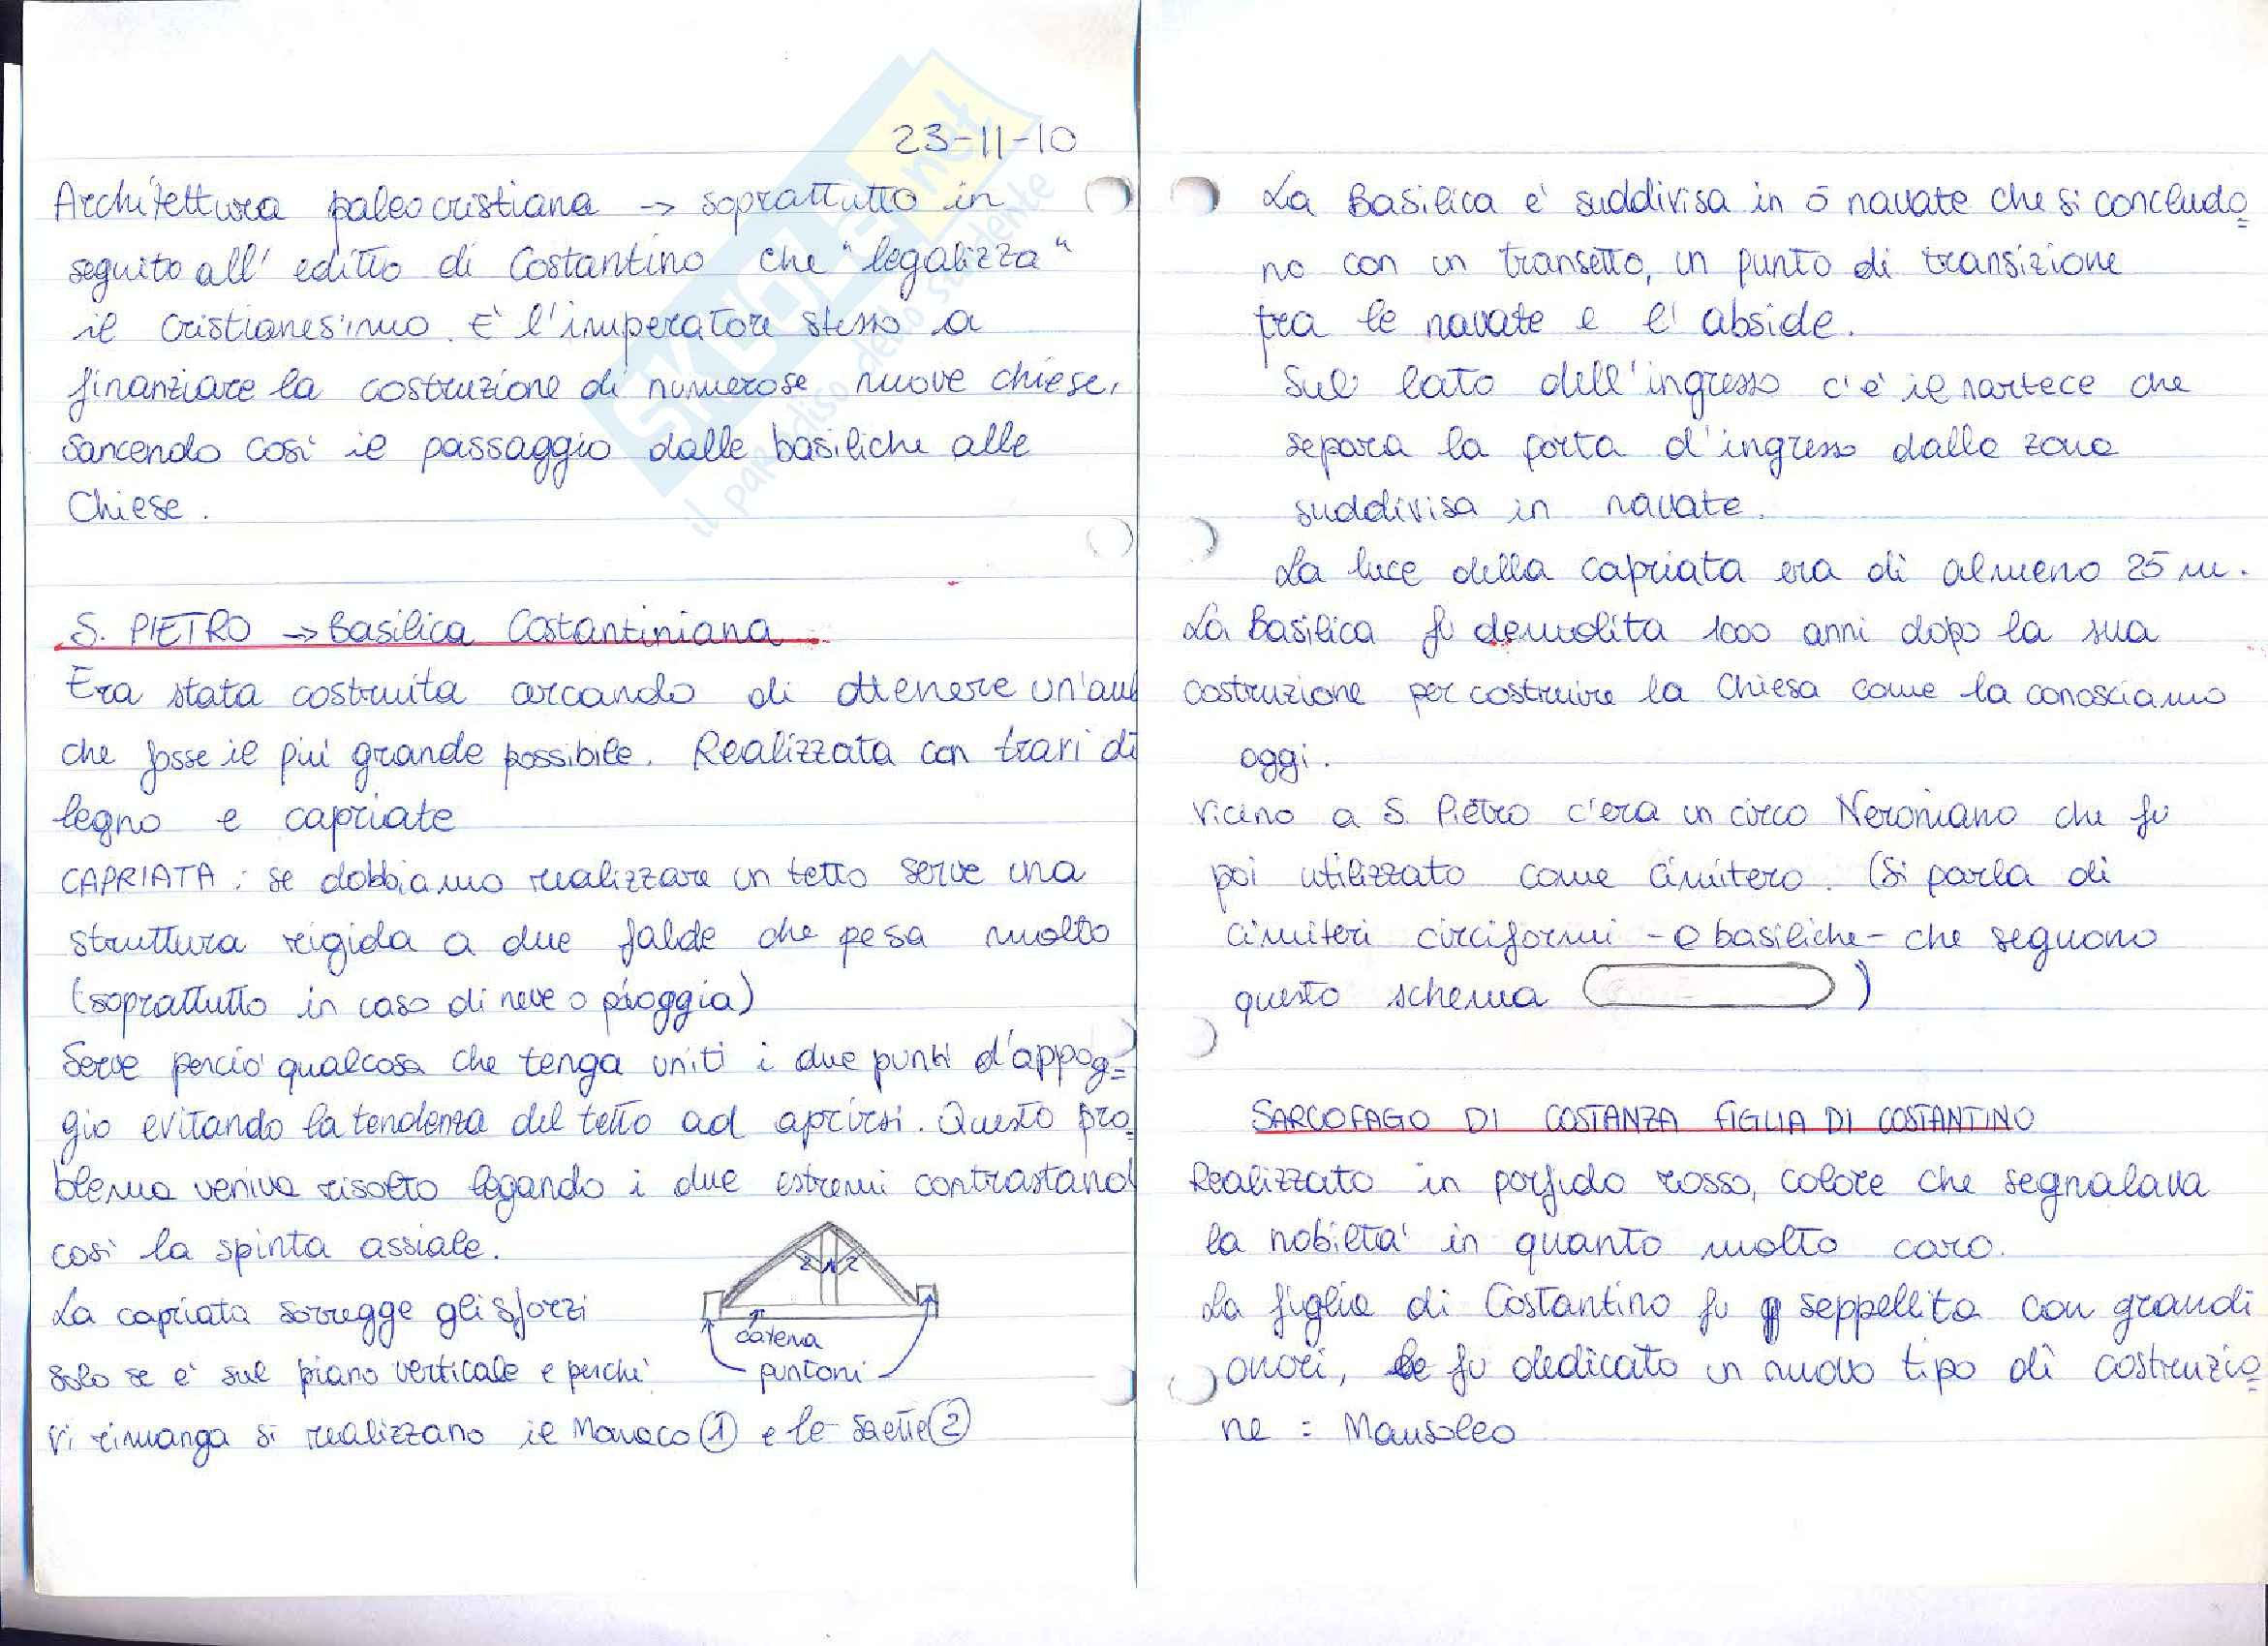 23-11-10
Architettura paleocristiana → soprattutto in
seguito all' editto di Costantino che "legalizza"
il cristianesimo. E' l'imperatore stesso a
finanziare la costruzione di numerose nuove chiese,
sancendo così il passaggio dalle basiliche alle
Chiese.
S. PIETRO → Basilica Costantiniana
Era stata costruita cercando di ottenere un'aul
che fosse il più grande possibile. Realizzata con travi di
legno e capriate
CAPRIATA: se dobbiamo realizzare un tetto serve una
struttura rigida a due falde che pesa molto
(soprattutto in caso di neve o pioggia)
Serve perciò qualcosa che tenga uniti i due punti d'appog=
gio evitando la tendenza del tetto ad aprirsi. Questo pro=
blema veniva risolto legando i due estremi contrastand
così la spinta assiale.
La capriata sorregge gli sforzi
solo se è sul piano verticale e perchè
vi rimanga si realizzano il Monaco ① e le saette ②
2 1 2
catena
puntoni
La Basilica è suddivisa in 5 navate che si concludo=
no con un transetto, un punto di transizione
fra le navate e l'abside.
Sul lato dell'ingresso c'è il nartece che
separa la porta d'ingresso dalla zona
suddivisa in navate.
La luce della capriata era di almeno 25 m.
La Basilica fu demolita 1000 anni dopo la sua
costruzione per costruire la Chiesa come la conosciamo
oggi.
Vicino a S. Pietro c'era un circo Neroniano che fu
poi utilizzato come cimitero. (Si parla di
cimiteri circiformi - o basiliche - che seguono
questo schema )
SARCOFAGO DI COSTANZA FIGLIA DI COSTANTINO
Realizzato in porfido rosso, colore che segnalava
la nobiltà in quanto molto caro.
La figlia di Costantino fu seppellita con grandi
onori, le fu dedicato un nuovo tipo di costruzio=
ne = Mausoleo
SKUOLA.net
il paradiso dello studente